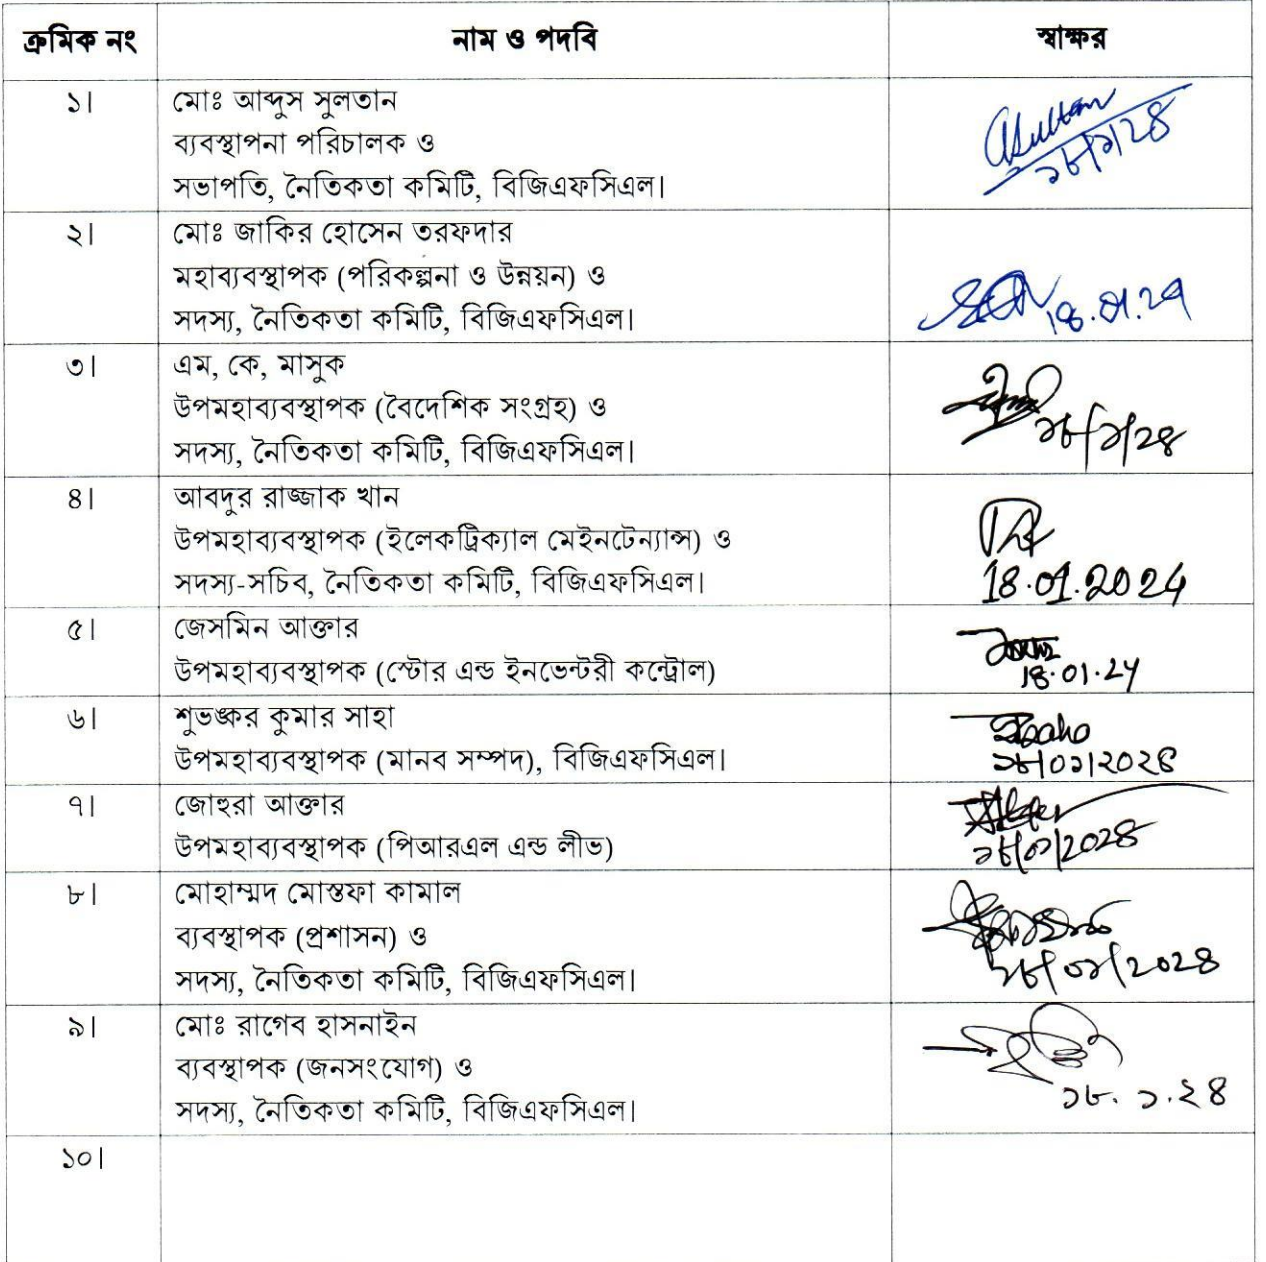 ক্রমিক নং	নাম ও পদবি	স্বাক্ষর
১।	মোঃ আব্দুস সুলতান
ব্যবস্থাপনা পরিচালক ও
সভাপতি, নৈতিকতা কমিটি, বিজিএফসিএল।
ASultan
১৮/১/২৪
২।	মোঃ জাকির হোসেন তরফদার
মহাব্যবস্থাপক (পরিকল্পনা ও উন্নয়ন) ও
সদস্য, নৈতিকতা কমিটি, বিজিএফসিএল।
18.01.24
৩।	এম, কে, মাসুক
উপমহাব্যবস্থাপক (বৈদেশিক সংগ্রহ) ও
সদস্য, নৈতিকতা কমিটি, বিজিএফসিএল।
১৮/১/২৪
৪।	আবদুর রাজ্জাক খান
উপমহাব্যবস্থাপক (ইলেকট্রিক্যাল মেইনটেন্যান্স) ও
সদস্য-সচিব, নৈতিকতা কমিটি, বিজিএফসিএল।
18.01.2024
৫।	জেসমিন আক্তার
উপমহাব্যবস্থাপক (স্টোর এন্ড ইনভেন্টরী কন্ট্রোল)
18.01.24
৬।	শুভঙ্কর কুমার সাহা
উপমহাব্যবস্থাপক (মানব সম্পদ), বিজিএফসিএল।
১৮/০১/২০২৪
৭।	জোহুরা আক্তার
উপমহাব্যবস্থাপক (পিআরএল এন্ড লীভ)
১৮/০১/২০২৪
৮।	মোহাম্মদ মোস্তফা কামাল
ব্যবস্থাপক (প্রশাসন) ও
সদস্য, নৈতিকতা কমিটি, বিজিএফসিএল।
১৮/০১/২০২৪
৯।	মোঃ রাগেব হাসনাইন
ব্যবস্থাপক (জনসংযোগ) ও
সদস্য, নৈতিকতা কমিটি, বিজিএফসিএল।
১৮.১.২৪
১০।